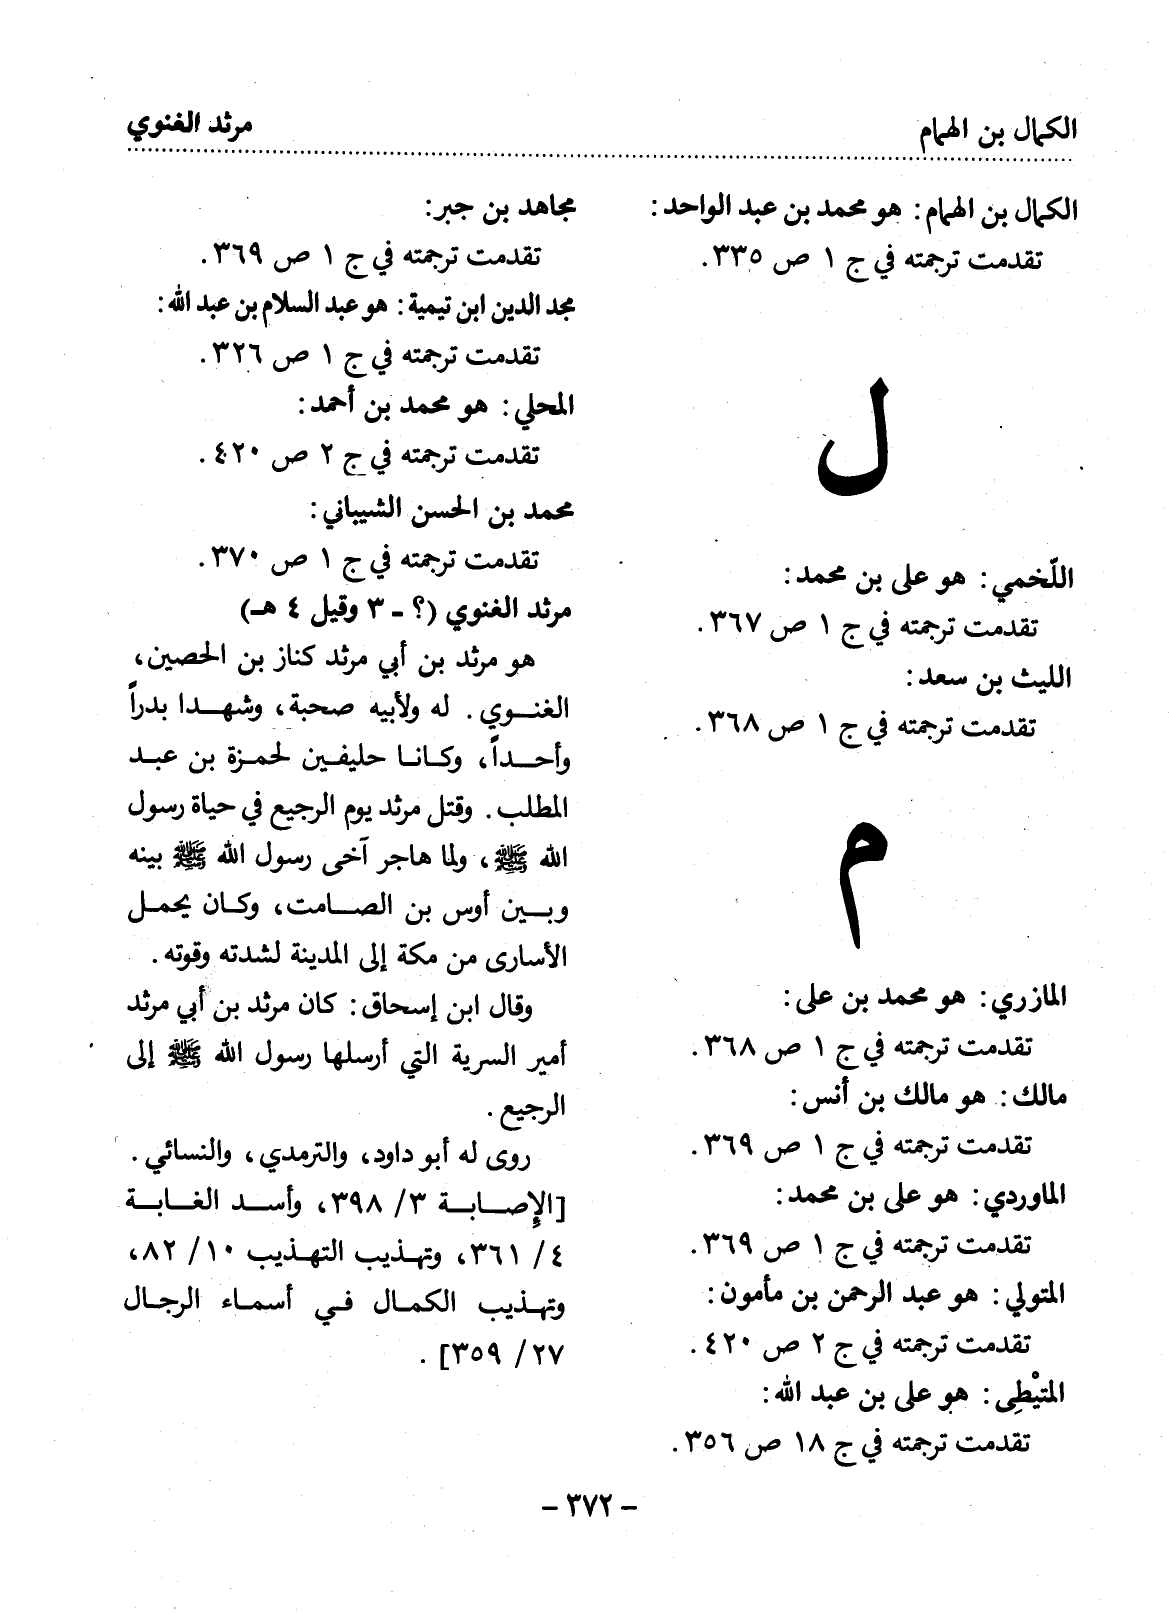 الكمال بن الهمام
مرثد الغنوي
الكمال بن الهمام: هو محمد بن عبد الواحد:
تقدمت ترجمته في ج ١ ص ٣٣٥.
ل
اللّخمي: هو على بن محمد:
تقدمت ترجمته في ج ١ ص ٣٦٧.
الليث بن سعد:
تقدمت ترجمته في ج ١ ص ٣٦٨.
م
المازري: هو محمد بن على:
تقدمت ترجمته في ج ١ ص ٣٦٨.
مالك: هو مالك بن أنس:
تقدمت ترجمته في ج ١ ص ٣٦٩.
الماوردي: هو على بن محمد:
تقدمت ترجمته في ج ١ ص ٣٦٩.
المتولي: هو عبد الرحمن بن مأمون:
تقدمت ترجمته في ج ٢ ص ٤٢٠.
المتيْطِى: هو على بن عبد الله:
تقدمت ترجمته في ج ١٨ ص ٣٥٦.
مجاهد بن جبر:
تقدمت ترجمته في ج ١ ص ٣٦٩.
مجد الدين ابن تيمية: هو عبد السلام بن عبد الله:
تقدمت ترجمته في ج ١ ص ٣٢٦.
المحلي: هو محمد بن أحمد:
تقدمت ترجمته في ج ٢ ص ٤٢٠.
محمد بن الحسن الشيباني:
تقدمت ترجمته في ج ١ ص ٣٧٠.
مرثد الغنوي (؟ - ٣ وقيل ٤ هـ)
هو مرثد بن أبي مرثد كناز بن الحصين،
الغنوي. له ولأبيه صحبة، وشهدا بدراً
وأحداً، وكانا حليفين لحمزة بن عبد
المطلب. وقتل مرثد يوم الرجيع في حياة رسول
الله ﷺ، ولما هاجر آخى رسول الله ﷺ بينه
وبين أوس بن الصامت، وكان يحمل
الأسارى من مكة إلى المدينة لشدته وقوته.
وقال ابن إسحاق: كان مرثد بن أبي مرثد
أمير السرية التي أرسلها رسول الله ﷺ إلى
الرجيع.
روى له أبو داود، والترمدي، والنسائي.
[الإصابة ٣/ ٣٩٨، وأسد الغابة
٤/ ٣٦١، وتهذيب التهذيب ١٠/ ٨٢،
وتهذيب الكمال في أسماء الرجال
٢٧/ ٣٥٩].
- ٣٧٢ -